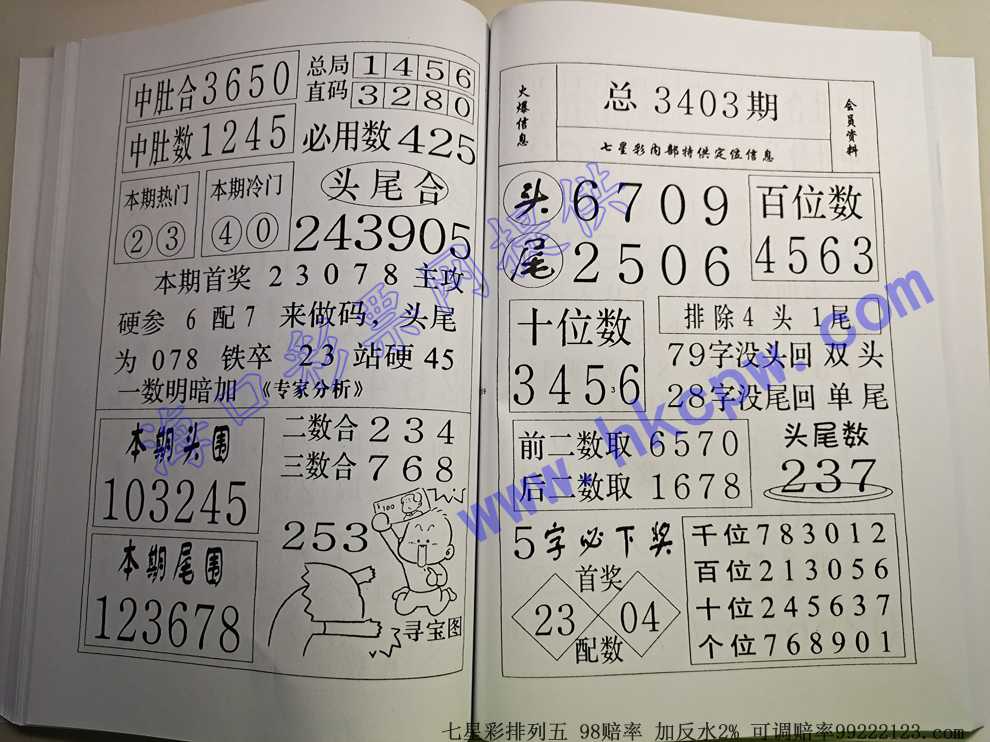 中肚合3650
中肚数1245
总局1456
直码3280
必用数425
本期热门
②③
本期冷门
④⓪
头尾合
243905
本期首奖23078主攻
硬参6配7来做码,头尾
为078铁卒23站硬45
一数明暗加《专家分析》
本期头围
103245
本期尾围
123678
二数合234
三数合768
253
100
寻宝图
火爆信息
总3403期
七星彩内部特供定位信息
会员资料
头6709
尾2506
百位数
4563
十位数
34536
排除4头1尾
79字没头回双头
28字没尾回单尾
前二数取6570
后二数取1678
头尾数
237
5字必下奖
首奖
23
04
配数
千位783012
百位213056
十位245637
个位768901
海口彩票网提供
www.hkcpw.com
七星彩排列五 98赔率 加反水2% 可调赔率99222123.com